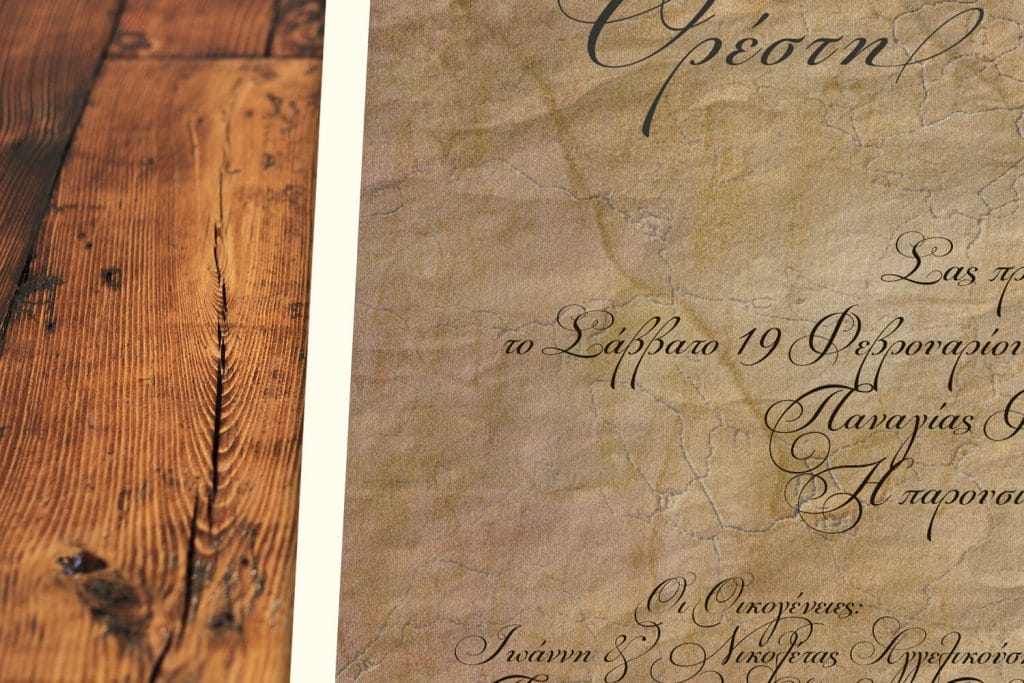 Ορέστη
Σας πρ
το Σάββατο 19 Φεβρουαρίου
Παναγίας
Η παρουσι
Οι Οικογένειες:
Ιωάννη & Νικολέτας Αγγελικούση